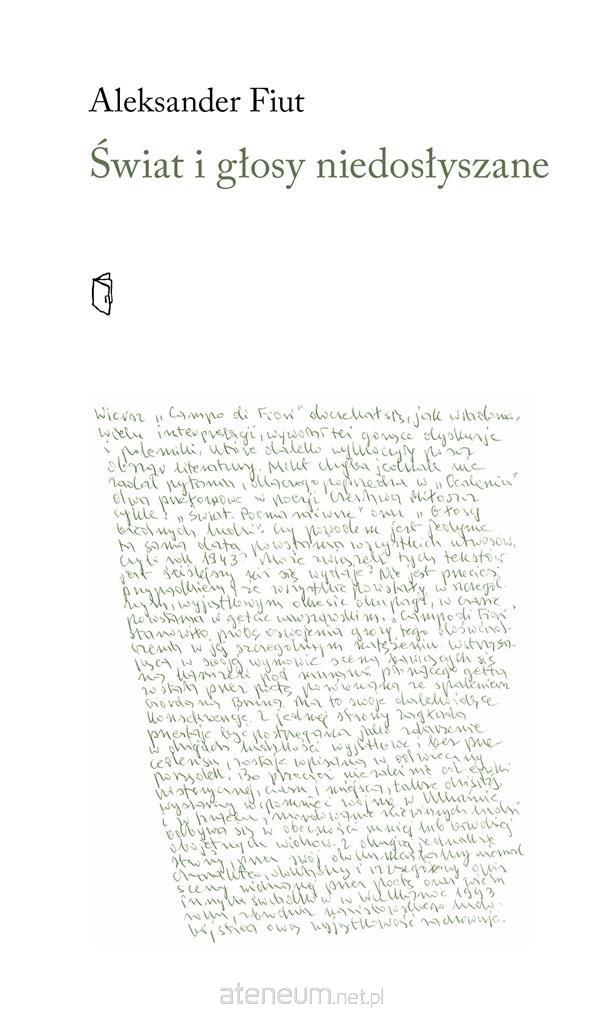 Aleksander Fiut
Świat i głosy niedosłyszane
Wiersz „Campo di Fiori" doczekał się, jak wiadomo,
wielu interpretacji, wywołał też gorące dyskusje
i polemiki, które daleko wykroczyły poza
obszar literatury. Nikt chyba jednak nie
zadał pytania, dlaczego poprzedza w „Ocaleniu"
dwa poetyckie w poezji Czesława Miłosza
cykle: „Świat. Poema naiwne" oraz „Głosy
biednych ludzi". Czy powodem jest jedynie
ta sama data powstania wszystkich utworów,
czyli rok 1943? Może związek tych tekstów
jest ściślejszy niż się wydaje? Nie jest przecież
przypadkiem, że wszystkie powstały w szczegól-
nym, wyjątkowym okresie okupacji, w czasie
powstania w getcie warszawskim. „Campo di Fiori"
stanowiło próbę oswojenia grozy tego doświad-
czenia w jej szczególnym natężeniu. Wstrząsa-
jąca w swojej wymowie scena bawiących się
na karuzeli pod murami płonącego getta
została przez poetę porównana ze spaleniem
Giordana Bruna. Ma to swoje dalekoidące
konsekwencje. Z jednej strony zagłada
przestaje być postrzegana jako zdarzenie
w dziejach ludzkości wyjątkowe i bez pre-
cedensu, zostaje wpisana w odwieczny
porządek. Bo przecież niezależnie od epoki
historycznej, czasu i miejsca, także dzisiaj,
wystarczy wspomnieć wojnę w Ukrainie
i mordowanie niewinnych ludzi
odbywa się w obecności mniej lub bardziej
obojętnych widzów. Z drugiej jednakże
strony przez swój
charakter, i szczegółowy opis
sceny widzianej przez poetę oraz
innych świadków w Wielkanoc 1943
roku, zbrodnia nazistowskiego ludo-
bójstwa ową wyjątkowość zachowuje.
ateneum.net.pl